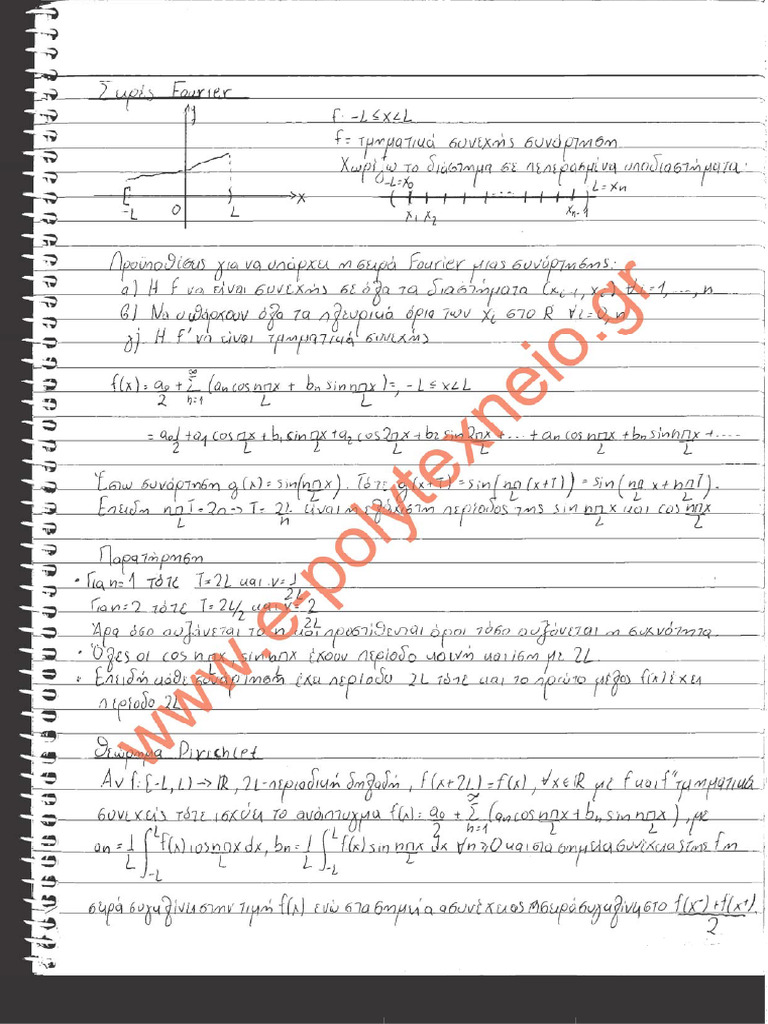 Σειρές Fourier
y
x
-L
O
L
f: -L≤x<L
f= τμηματικά συνεχής συνάρτηση
Χωρίζω το διάστημα σε πεπερασμένα υποδιαστήματα:
-L=x₀
L=xₙ
x₁ x₂
xₙ₋₁
Προϋποθέσεις για να υπάρχει η σειρά Fourier μιας συνάρτησης:
α) Η f να είναι συνεχής σε όλα τα διαστήματα (xᵢ₋₁, xᵢ) ∀i=1,...,n
β) Να υπάρχουν όλα τα πλευρικά όρια των xᵢ στο R ∀i=0,n
γ) Η f' να είναι τμηματικά συνεχής
f(x)= a₀/2 + Σ_{n=1}^{∞} (aₙcos nπx/L + bₙsin nπx/L)=, -L≤x<L
= a₀/2 + a₁cos πx/L + b₁sin πx/L + a₂cos 2πx/L + b₂sin 2πx/L + ... + aₙcos nπx/L + bₙsin nπx/L + ....
Έστω συνάρτηση g(x)=sin(nπx/L). Τότε g(x+T)=sin(nπ/L (x+T))=sin(nπ/L x+nπ/L T).
Επειδή nπ/L T=2π→T= 2L/n είναι η ελάχιστη περίοδος της sin nπx/L και cos nπx/L
Παρατήρηση
• Για n=1 τότε T=2L και ν=1/2L
Για n=2 τότε T=2L/2 και ν=2/2L
Άρα όσο αυξάνεται το n και προστίθενται όροι τόσο αυξάνεται η συχνότητα.
• Όλες οι cos nπx/L, sin nπx/L έχουν περίοδο κοινή και ίση με 2L
• Επειδή κάθε συνάρτηση έχει περίοδο 2L τότε και το πρώτο μέλος f(x) έχει
περίοδο 2L
Θεώρημα Dirichlet
Αν f:[-L,L)→R, 2L-περιοδική δηλαδή, f(x+2L)=f(x), ∀x∈R με f και f' τμηματικά
συνεχείς τότε ισχύει το ανάπτυγμα f(x)= a₀/2 + Σ_{n=1}^{∞} (aₙcos nπx/L + bₙsin nπx/L), με
aₙ=1/L ∫_{-L}^{L} f(x)cos nπx/L dx, bₙ=1/L ∫_{-L}^{L} f(x)sin nπx/L dx ∀n≥0 και στα σημεία συνέχειας της f η
σειρά συγκλίνει στην τιμή f(x) ενώ στα σημεία ασυνέχειας η σειρά συγκλίνει στο f(x⁻)+f(x⁺)/2.
www.e-polytexneio.gr